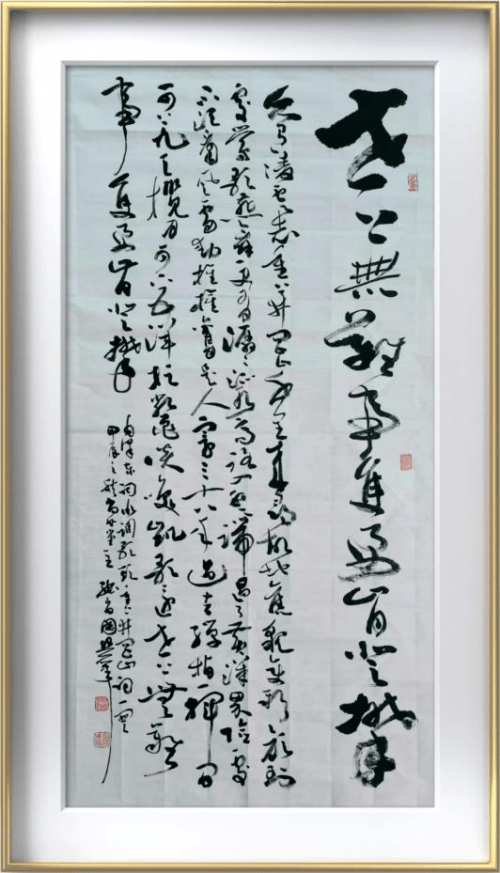 世上無難事隻要肯登攀
久有凌雲志重上井岡山千里來尋故地舊貌變新顏到
處鶯歌燕舞更有潺潺流水高路入雲端過了黃洋界險處
不須看風雷動旌旗奮是人寰三十八年過去彈指一揮間
可上九天攬月可下五洋捉鱉談笑凱歌還世上無難
事隻要肯登攀
毛澤東詞水調歌頭重上井岡山詞一首
甲辰之秋